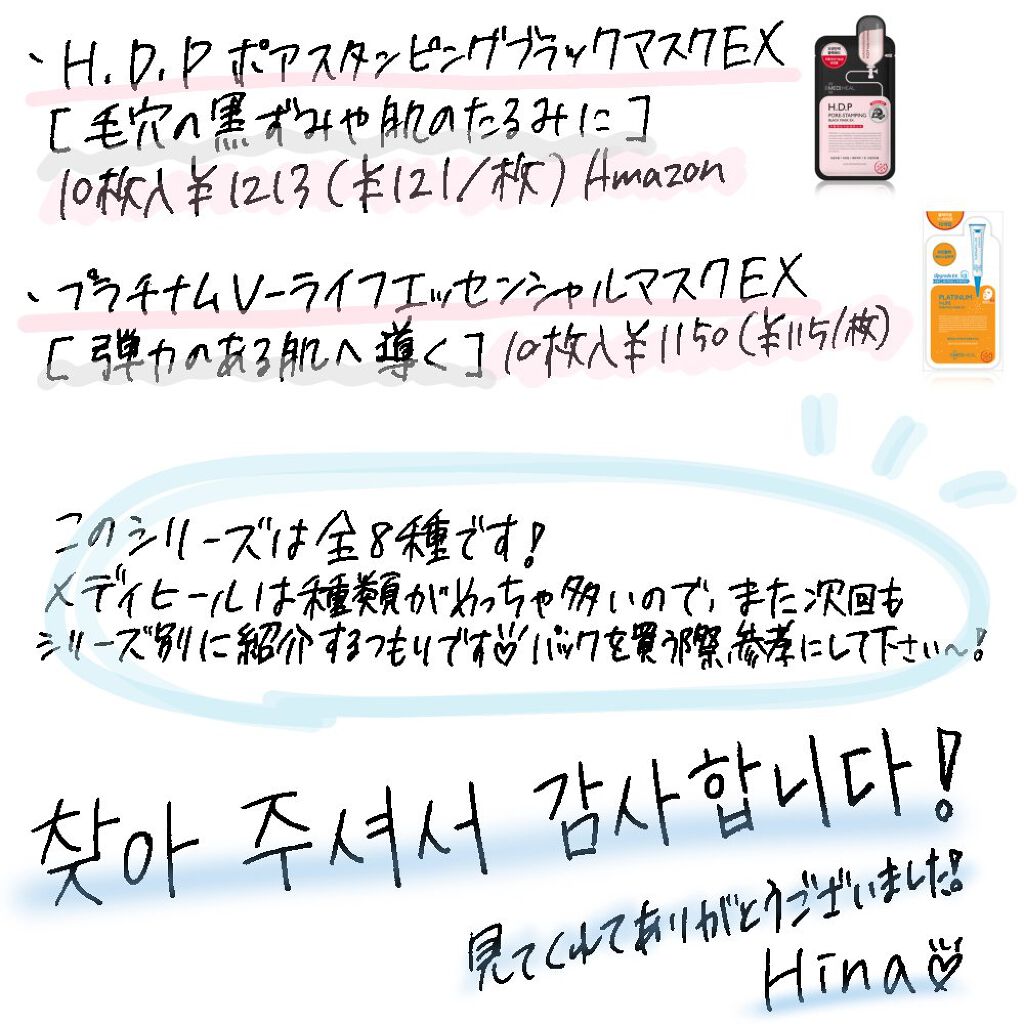 、H.D.PポアスタンピングブラックマスクEX
[毛穴の黒ずみや肌のたるみに]
10枚入¥1213(¥121/枚)Amazon
MEDIHEAL
H.D.P
PORE-STAMPING
BLACK MASK EX
、プラチナムV-ライフエッセンシャルマスクEX
[弾力のある肌へ導く]10枚入¥1150(¥115/枚)
Upgrade EX
PLATINUM
V-LIFE
MEDIHEAL
このシリーズは全8種です!
メディヒールは種類がめっちゃ多いので、また次回も
シリーズ別に紹介するつもりです♡パックを買う際参考にして下さい〜!
찾아 주셔서 감사합니다!
見てくれてありがとうございました!
Hina♡